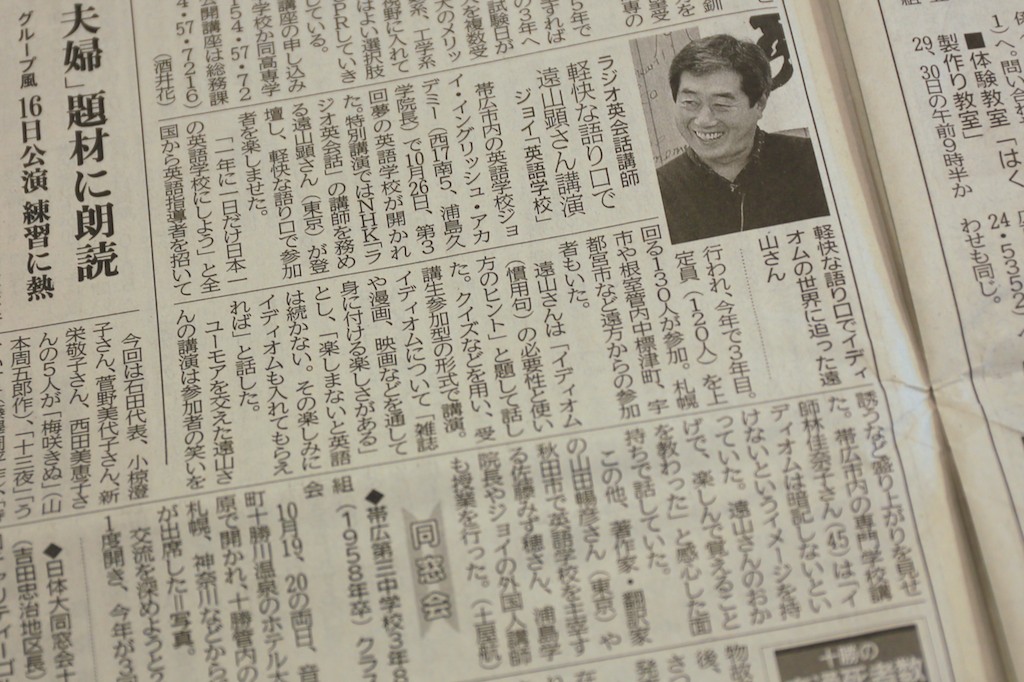 釧
5年で
すれば
の3年へ
試験日が
を複数受
大のメリッ
系、工学系
野に入れて
はよい選択肢
PRしていき
している。
講座の申し込み
学校か同高専学
154・57・72
公開講座は総務課
4・57・7216)
(酒井花)
夫婦」題材に朗読
グループ風 16日公演 練習に熱
ラジオ英会話講師
軽快な語り口で
遠山顕さん講演
ジョイ「英語学校」
帯広市内の英語学校ジョ
イ・イングリッシュ・アカ
デミー(西17南5、浦島久
学院長)で10月26日、第3
回夢の英語学校が開かれ
た。特別講演ではNHK「ラ
ジオ英会話」の講師を務め
る遠山顕さん(東京)が登
壇し、軽快な語り口で参加
者を楽しませた。
「一年に一日だけ日本一
の英語学校にしよう」と全
国から英語指導者を招いて
軽快な語り口でイディ
オムの世界に迫った遠
山さん
行われ、今年で3年目。
定員(120人)を上
回る130人が参加。札幌
市や根室管内中標津町、宇
都宮市など遠方からの参加
者もいた。
遠山さんは「イディオム
(慣用句)の必要性と使い
方のヒント」と題して話し
た。クイズなどを用い、受
講生参加型の形式で講演。
イディオムについて「雑誌
や漫画、映画などを通して
身に付ける楽しさがある」
とし、「楽しまないと英語
は続かない。その楽しみに
イディオムも入れてもらえ
れば」と話した。
ユーモアを交えた遠山さ
んの講演は参加者の笑いを
誘うなど盛り上がりを見せ
た。帯広市内の専門学校講
師林佳奈子さん(45)は「イ
ディオムは暗記しないとい
けないというイメージを持
っていた。遠山さんのおか
げで、楽しんで覚えること
を教わった」と感心した面
持ちで話していた。
この他、著作家・翻訳家
の山田暢彦さん(東京)や
秋田市で英語学校を主宰す
る佐藤みず穂さん、浦島学
院長やジョイの外国人講師
も授業を行った。(土屋航)
今回は石田代表、小椋澄
子さん、菅野美代子さん、新
栄敬子さん、西田美恵子さ
んの5人が「梅咲きぬ」(山
本周五郎作)、「十三夜」「ろ
同窓会
◆帯広第三中学校3年8
組(1958年卒)クラ
会
10月19、20の両日、音
町十勝川温泉のホテル大
原で開かれ、十勝管内の
札幌、神奈川などから
が出席した=写真。
交流を深めようと2
1度開き、今年が3
◆日体大同窓会十
(吉田忠治地区長)
1)へ。問い合わせ
■体験教室「はく
製作り教室」
29、30日の午前9時半か
24・5352)
わせも同じ。
十勝の